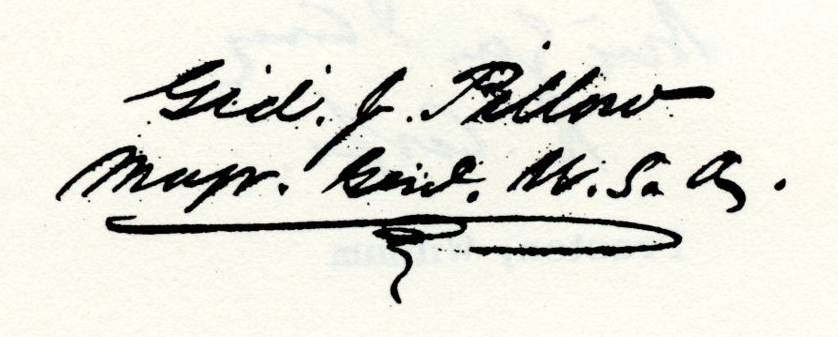 Gid. J. Pillow
Majr. Genl. U. S. A.